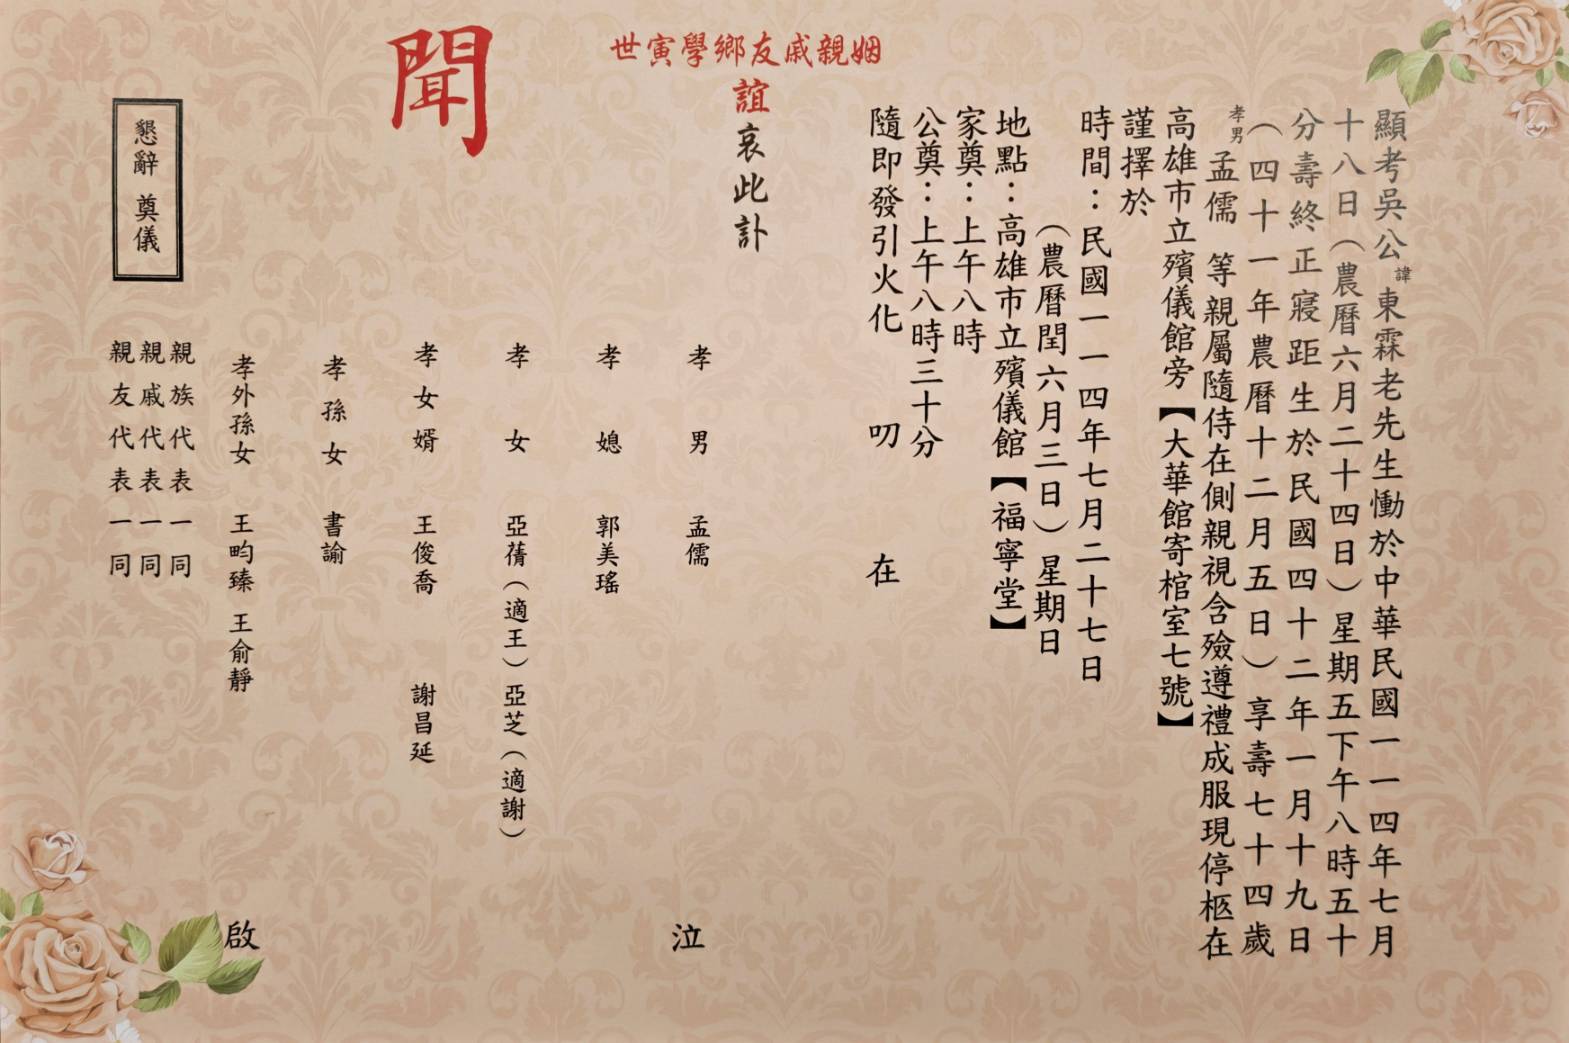 顯考吳公諱東霖老先生慟於中華民國一一四年七月
十八日（農曆六月二十四日）星期五下午八時五十
分壽終正寢距生於民國四十二年一月十九日
（四十一年農曆十二月五日）享壽七十四歲
孝男孟儒 等親屬隨侍在側親視含殮遵禮成服現停柩在
高雄市立殯儀館旁【大華館寄棺室七號】
謹擇於
時間：民國一一四年七月二十七日
（農曆閏六月三日）星期日
地點：高雄市立殯儀館【福寧堂】
家奠：上午八時
公奠：上午八時三十分
隨即發引火化 叨 在
姻親戚友鄉學寅世
誼哀此訃
聞
孝男 孟儒 泣
孝媳 郭美瑤
孝女 亞蒨（適王）亞芝（適謝）
孝女婿 王俊喬 謝昌延
孝孫女 書諭
孝外孫女 王畇臻 王俞靜 啟
親族代表一同
親戚代表一同
親友代表一同
懇辭 奠儀